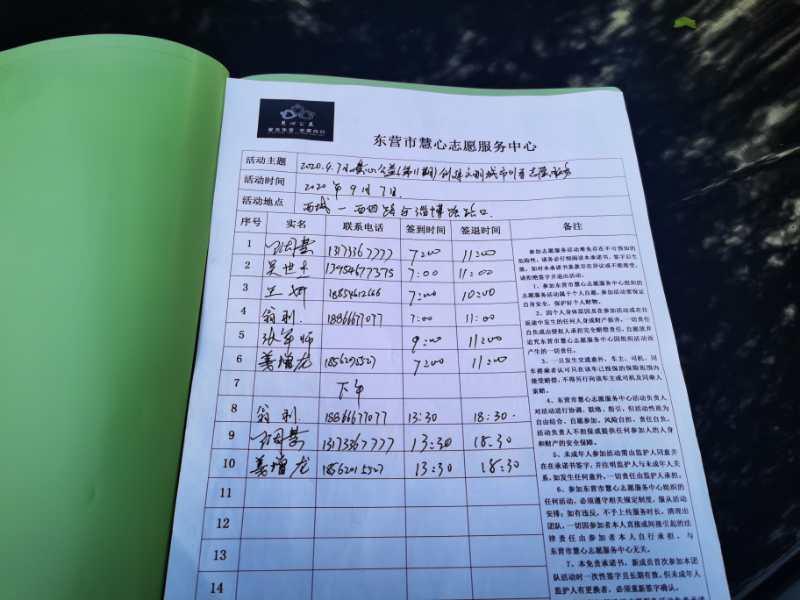 慧心公益
东营市慧心志愿服务中心
活动主题 2020.9.7日慧心公益(第11期)创建文明城市
活动时间 2020年9月7日.
活动地点 西城一西四路与淄博路路口.
序号 实名 联系电话 签到时间 签退时间 备注
1 7:00 11:00
2 吴世杰 13954677375 7:00 11:00
3 王妍 7:00 10:00
4 翁利. 18866677077 7:00 11:00
5 张军师 9:00 11:00
6 姜增龙 7:00 11:00
7 下午
8 翁利 18866677077 13:30 18:30.
9 13:30 18:30
10 姜增龙 13:30 18:30
11
12
13
14
参加志愿服务活动难免存在不可预知的
危险性，请务必仔细阅读本承诺书，签字后生
效，如对本承诺书条款存在异议或不能接受，
请拒绝签字并退出活动。
1、参加东营市慧心志愿服务中心组织的
志愿服务活动属于个人自愿，参加活动需保证
自身安全，保护好个人财物。
2、因个人身体原因及在参加活动或在往
返途中发生的任何人身或财产损害，一切责任
自负或由侵权人承担完全赔偿责任，自愿放弃
追究东营市慧心志愿服务中心因组织活动所
产生的一切责任。
3、一旦发生交通意外，车主、司机、同
车搭乘者认可只在该车已投保的保险范围内
接受赔偿，不得另行向该车主或司机及同乘人
索赔。
4、东营市慧心志愿服务中心活动负责人
对活动进行协调、联络、指引，但活动性质为
自由结合、自愿参加、风险自担、责任自负，
活动负责人不担保或提供任何参加人的人身
和财产的安全保障。
5、未成年人参加活动需由监护人同意并
在在承诺书签字，并注明监护人与未成年人关
系，如发生任何意外，一切责任由监护人承担。
6、参加东营市慧心志愿服务中心组织的
任何活动，必须遵守相关规定制度，服从活动
安排；如有违反，不予上传服务时长，清理出
团队，一切因参加者本人直接或间接引起的法
律责任由参加者本人自行承担，与
东营市慧心志愿服务中心无关。
7、本免责承诺书，新成员首次参加本团
队活动时一次性签字且长期有效，但未成年人
监护人有更换者，必须重新签字确认。